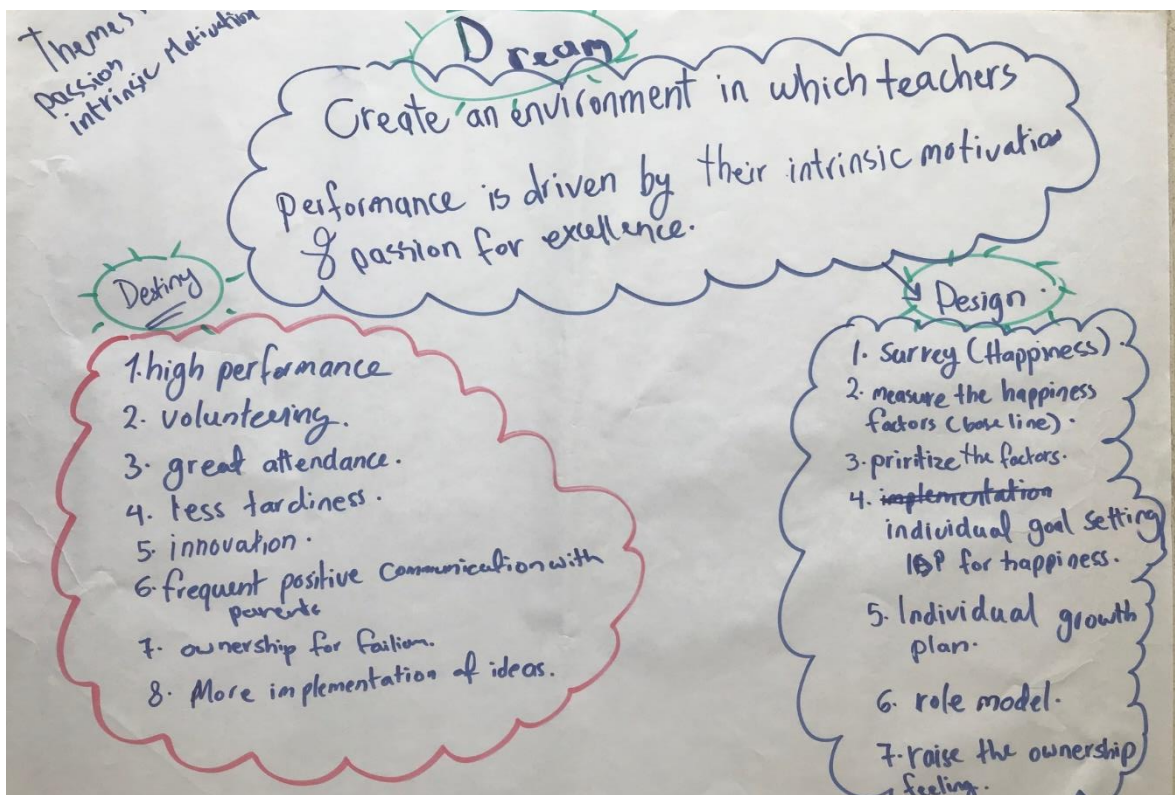 Themes
passion
intrinsic Motivation
Dream
Create an environment in which teachers
performance is driven by their intrinsic motivation
& passion for excellence.
Destiny
1. high performance
2. volunteering.
3. great attendance.
4. less tardiness.
5. innovation.
6. frequent positive communication with
parents
7. ownership for
8. More implementation of ideas.
Design.
1. Survey (Happiness).
2. measure the happiness
factors (base line).
3. priritize the factors.
4. implementation
individual goal setting
for happiness.
5. Individual growth
plan.
6. role model.
7. raise the ownership
feeling.